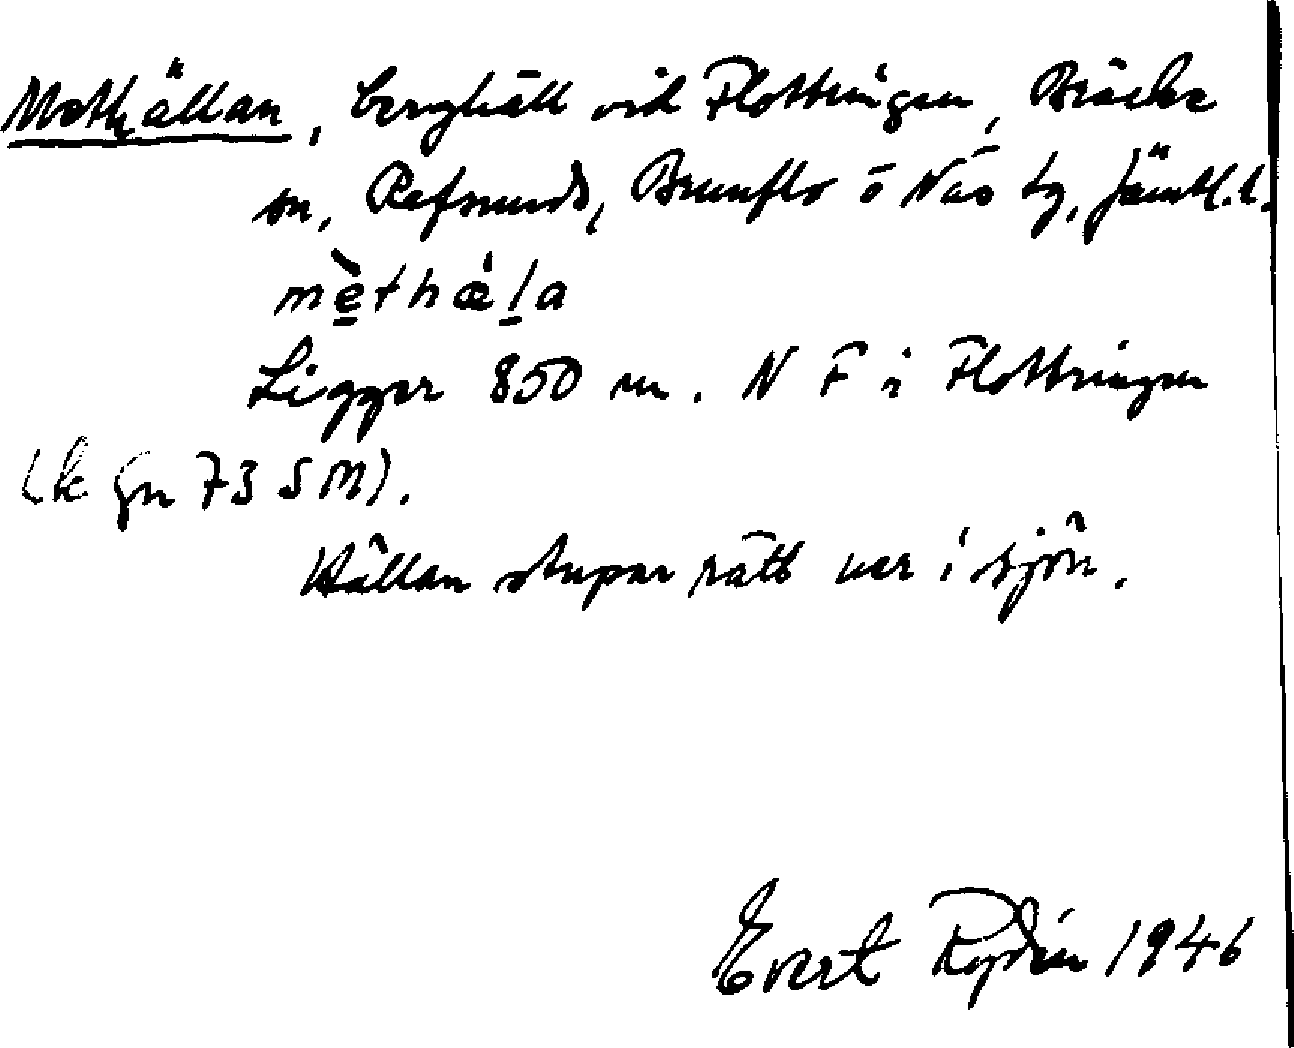 Methällan, berghäll vid Flottringen, Bräcke
sn, Refsunds, Brunflo o Näs tg, Jämtl. l.
mèthæ̀la
Ligger 850 m. N F i Flottringen
(k gn 73 5 M).
Hällan stupar rätt ner i sjön.
Evert Rydén 1946